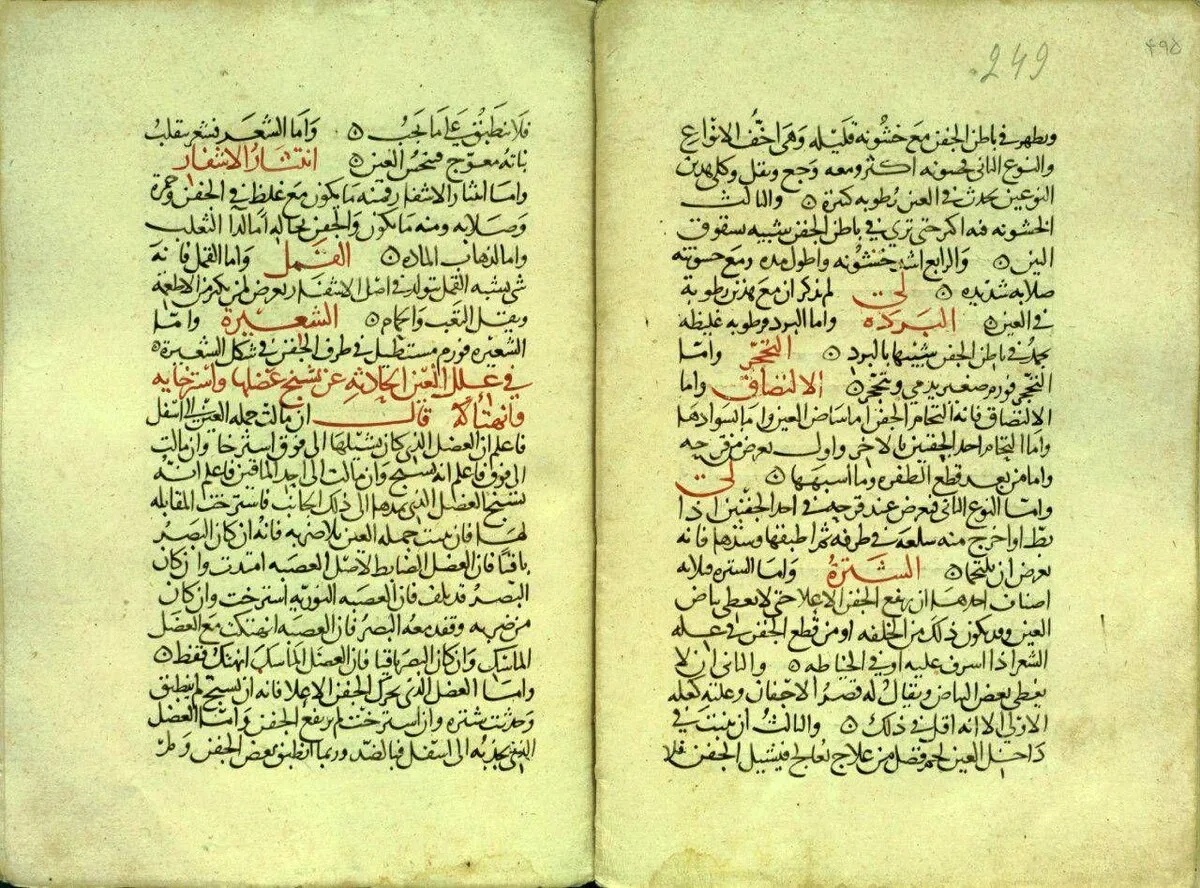 249
۴۹۵
ويظهر في باطن الجفن مع خشونة قليله وهي اخف الانواع
والنوع الثاني خشونه اكثر ومعه وجع وثقل وكلي هذين
النوعين يحدث في العين رطوبه كثيرة ٥ والثالث
الخشونه فيه اكثر حتى ترى في باطن الجفن شبيه بشقوق
التين ٥ والرابع اشد خشونه واطول مده ومع خشونته
صلابه شديده ٥ لي لم يذكر ان مع هذين رطوبة
في العين ٥ البرده واما البرد رطوبه غليظه
يجمد في باطن الجفن شبيها بالبرد ٥ التحجر واما
التحجر فورم صغير يدمي ويتحجر ٥ الالتصاق واما
الالتصاق فانه التحام الجفن اما ببياض العين واما بسوادها
واما التحام احد الجفنين بالاخر واول يعرض من قرحه
واما من بعد قطع الظفره وما اسبهها ٥ لي
واما النوع الثاني فيعرض عند قرحه في احد الجفنين اذا
بط او اخرج منه سلعه في طرفه ثم اطبقها وشدها فانه
يعرض ان يلتحما ٥ الشترة واما الشتره فثلاثه
اصناف احدها ان يرفع الجفن الاعلا حتى لا يغطي بياض
العين وقد يكون ذلك من الخلقه او من قطع الجفن في علة
الشعر اذا اسرف عليه او في الخياطه ٥ والثاني ان لا
يغطي بعض البياض ويقال له قصر الاجفان وعلته كعله
الاولى الا انه اقل في ذلك ٥ والثالث ان ينبت في
داخل العين لحم فضل من علاج يعالج فيشيل الجفن فلا
فلا ينطبق على ما يجب ٥ واما الشعر فشعر ينقلب
نباته معوج فينخس العين ٥ انتثار الاشفار
واما انتثار الاشفار فمنه ما يكون مع غلظ في الجفن وحمرة
وصلابه ومنه ما يكون والجفن بحاله اما لدا الثعلب
واما لذهاب الماده ٥ القمل واما القمل فانه
شي يشبه القمل يتولد في اصل الاشفار يعرض لمن يكثر من الاطعمة
ويقل التعب والحمام ٥ الشعيرة واما
الشعيره فورم مستطيل في طرف الجفن في شكل الشعيرة ٥
في علل العين الحادثه عن تشنج عضلها واسترخايه
وانهتاكه قال ان مالت جمله العين الى اسفل
فاعلم ان العضل الذي كان يشيلها الى فوق استرخا وان مالت
الى فوق فاعلم انه تشنج وان مالت الى احد الماقين فاعلم انه
تشنج العضل الذي يمدها الى ذلك الجانب واسترخت المقابله
لها فان نتت جمله العين بلا ضربه فانه ان كان البصر
باقيا فان العضل الضابط لاصل العصبه امتدت وان كان
البصر قد تلف فان العصبه النوريه استرخت وان كان
من ضربه وفقد معه البصر فان العصبه انهتكت مع العضل
الماسك وان كان البصر باقيا فان العضل الماسك انهتك فقط ٥
واما العضل الذي يحرك الجفن الاعلا فانه ان تشنج لم ينطبق
وحدثت شتره وان استرخت لم يرتفع الجفن واما العضل
الذي يجذبه الى اسفل فبالضد وربما انطبق بعض الجفن